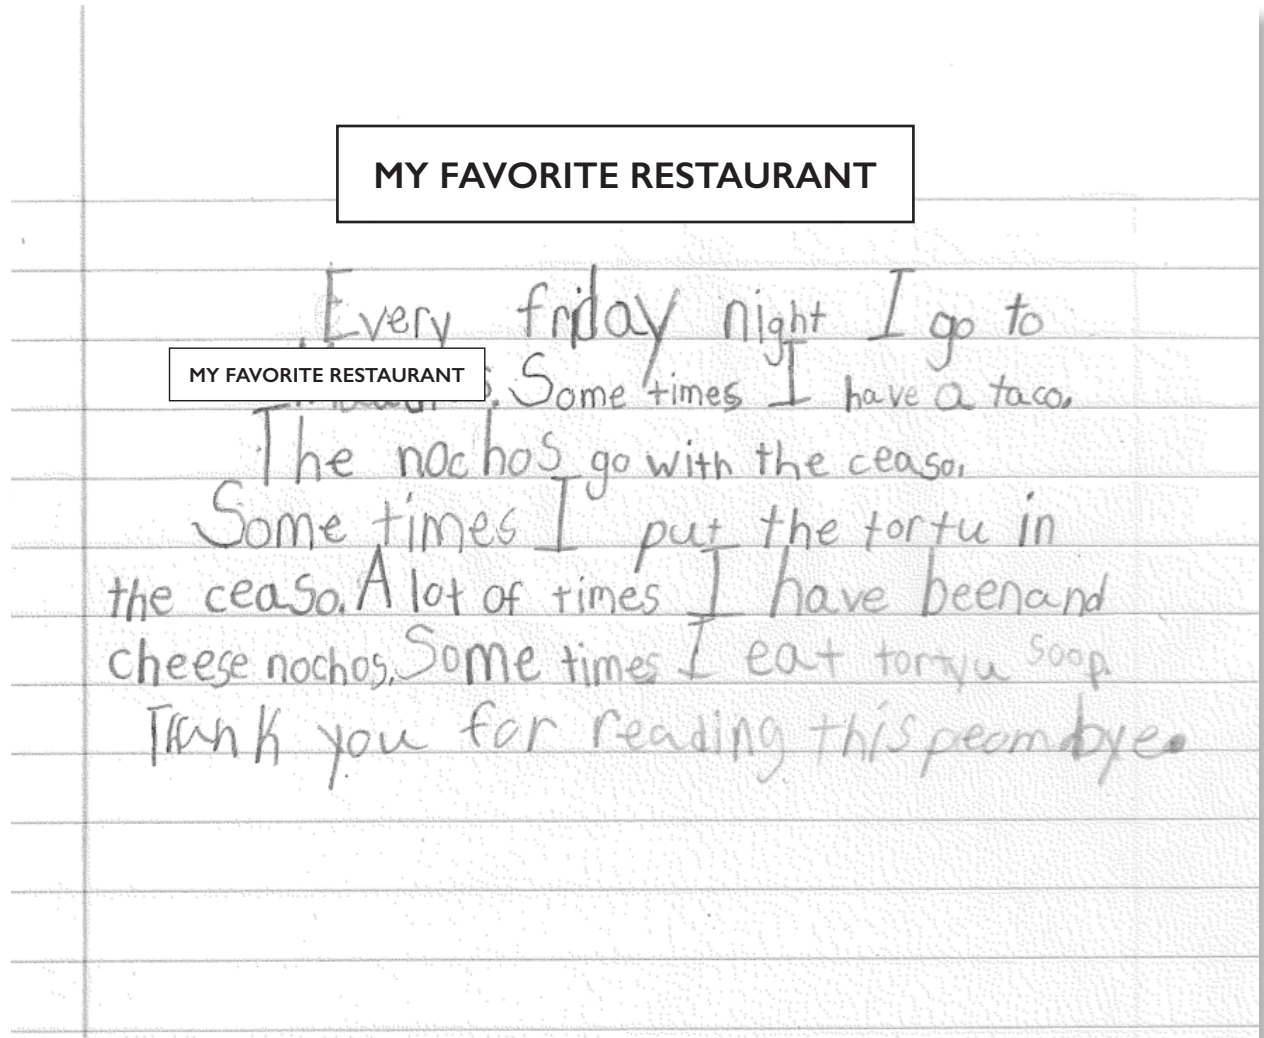 MY FAVORITE RESTAURANT
Every friday night I go to
MY FAVORITE RESTAURANT . Some times I have a taco.
The nochos go with the ceaso.
Some times I put the tortu in
the ceaso. A lot of times I have beenand
cheese nochos. Some times I eat tortyu soop.
Thank you for reading this peom bye.